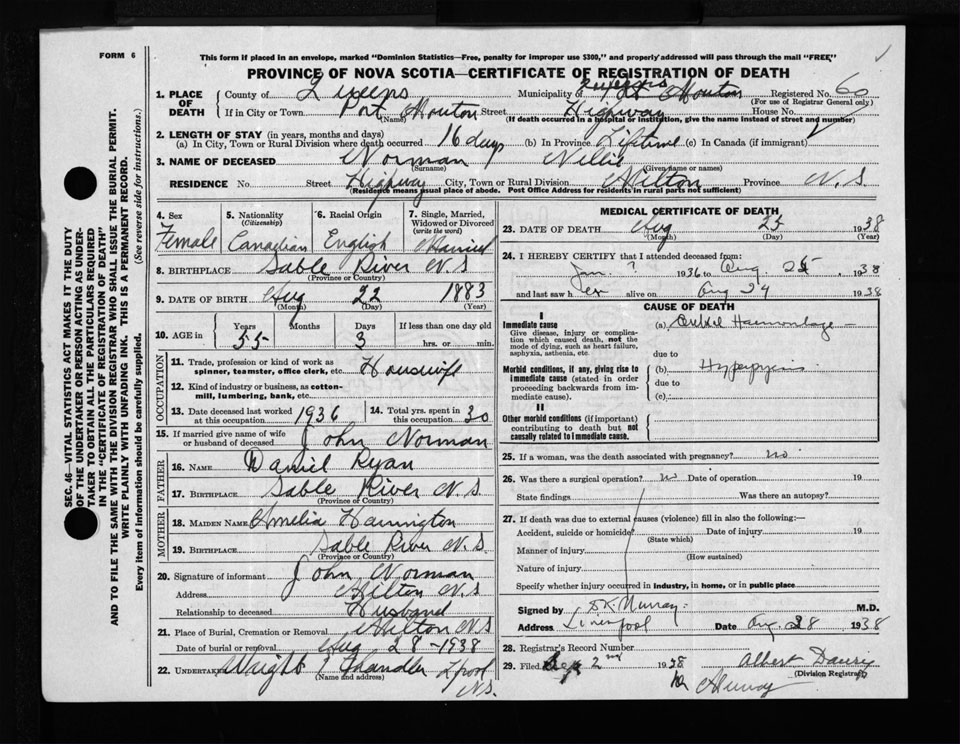 FORM 6
This form if placed in an envelope, marked "Dominion Statistics—Free, penalty for improper use $300," and properly addressed will pass through the mail "FREE"
PROVINCE OF NOVA SCOTIA—CERTIFICATE OF REGISTRATION OF DEATH
SEC. 46—VITAL STATISTICS ACT MAKES IT THE DUTY
OF THE UNDERTAKER OR PERSON ACTING AS UNDER-
TAKER TO OBTAIN ALL THE PARTICULARS REQUIRED
IN THE "CERTIFICATE OF REGISTRATION OF DEATH"
AND TO FILE THE SAME WITH THE DIVISION REGISTRAR WHO SHALL ISSUE THE BURIAL PERMIT.
WRITE PLAINLY WITH UNFADING INK. THIS IS A PERMANENT RECORD.
Every item of information should be carefully supplied. (See reverse side for instructions.)
1. PLACE OF DEATH County of Queens Municipality of Queens Mouton Registered No. 60
(For use of Registrar General only)
If in City or Town Port Mouton Street Highway House No.
(Name) (If death occurred in a hospital or institution, give the name instead of street and number)
2. LENGTH OF STAY (in years, months and days)
(a) In City, Town or Rural Division where death occurred 16 days (b) In Province Lifetime (c) In Canada (if immigrant)
3. NAME OF DECEASED Norman Nellie
(Surname) (Given name or names)
RESIDENCE No. Street Highway City, Town or Rural Division Milton Province N.S
(Residence means usual place of abode. Post Office Address for residents in rural parts not sufficient)
4. Sex Female
5. Nationality (Citizenship) Canadian
6. Racial Origin English
7. Single, Married, Widowed or Divorced (write the word) Married
8. BIRTHPLACE Sable River N.S
(Province or Country)
9. DATE OF BIRTH Aug 22 1883
(Month) (Day) (Year)
10. AGE in Years 55 Months Days 3 If less than one day old hrs. or min.
OCCUPATION
11. Trade, profession or kind of work as spinner, teamster, office clerk, etc. Housewife
12. Kind of industry or business, as cotton-mill, lumbering, bank, etc.
13. Date deceased last worked at this occupation 1936
14. Total yrs. spent in this occupation 30
15. If married give name of wife or husband of deceased John Norman
FATHER
16. NAME Daniel Ryan
17. BIRTHPLACE Sable River N.S.
(Province or Country)
MOTHER
18. MAIDEN NAME Amelia Harrington
19. BIRTHPLACE Sable River N.S.
(Province or Country)
20. Signature of informant John Norman
Address Milton N.S
Relationship to deceased Husband
21. Place of Burial, Cremation or Removal Milton N.S
Date of burial or removal Aug 28-1938
22. UNDERTAKER Wright Chandler L'pool N.S.
(Name and address)
MEDICAL CERTIFICATE OF DEATH
23. DATE OF DEATH Aug 25 1938
(Month) (Day) (Year)
24. I HEREBY CERTIFY that I attended deceased from:
Jan. ? 1936 to Aug. 25, 1938
and last saw her alive on Aug 24 1938
CAUSE OF DEATH
I
Immediate cause
Give disease, injury or complication which caused death, not the mode of dying, such as heart failure, asphyxia, asthenia, etc
(a) Haemorrhage
due to
Morbid conditions, if any, giving rise to immediate cause (stated in order proceeding backwards from immediate cause).
(b)
due to
(c)
II
Other morbid conditions (if important) contributing to death but not causally related to immediate cause.
25. If a woman, was the death associated with pregnancy? no
26. Was there a surgical operation? no Date of operation 19
State findings Was there an autopsy?
27. If death was due to external causes (violence) fill in also the following:—
Accident, suicide or homicide? Date of injury 19
(State which)
Manner of injury
(How sustained)
Nature of injury
Specify whether injury occurred in industry, in home, or in public place
Signed by Murray M.D.
Address Liverpool Date Aug. 28 1938
28. Registrar's Record Number
29. Filed Sep 2nd 1938 Albert
(Division Registrar)
Murray